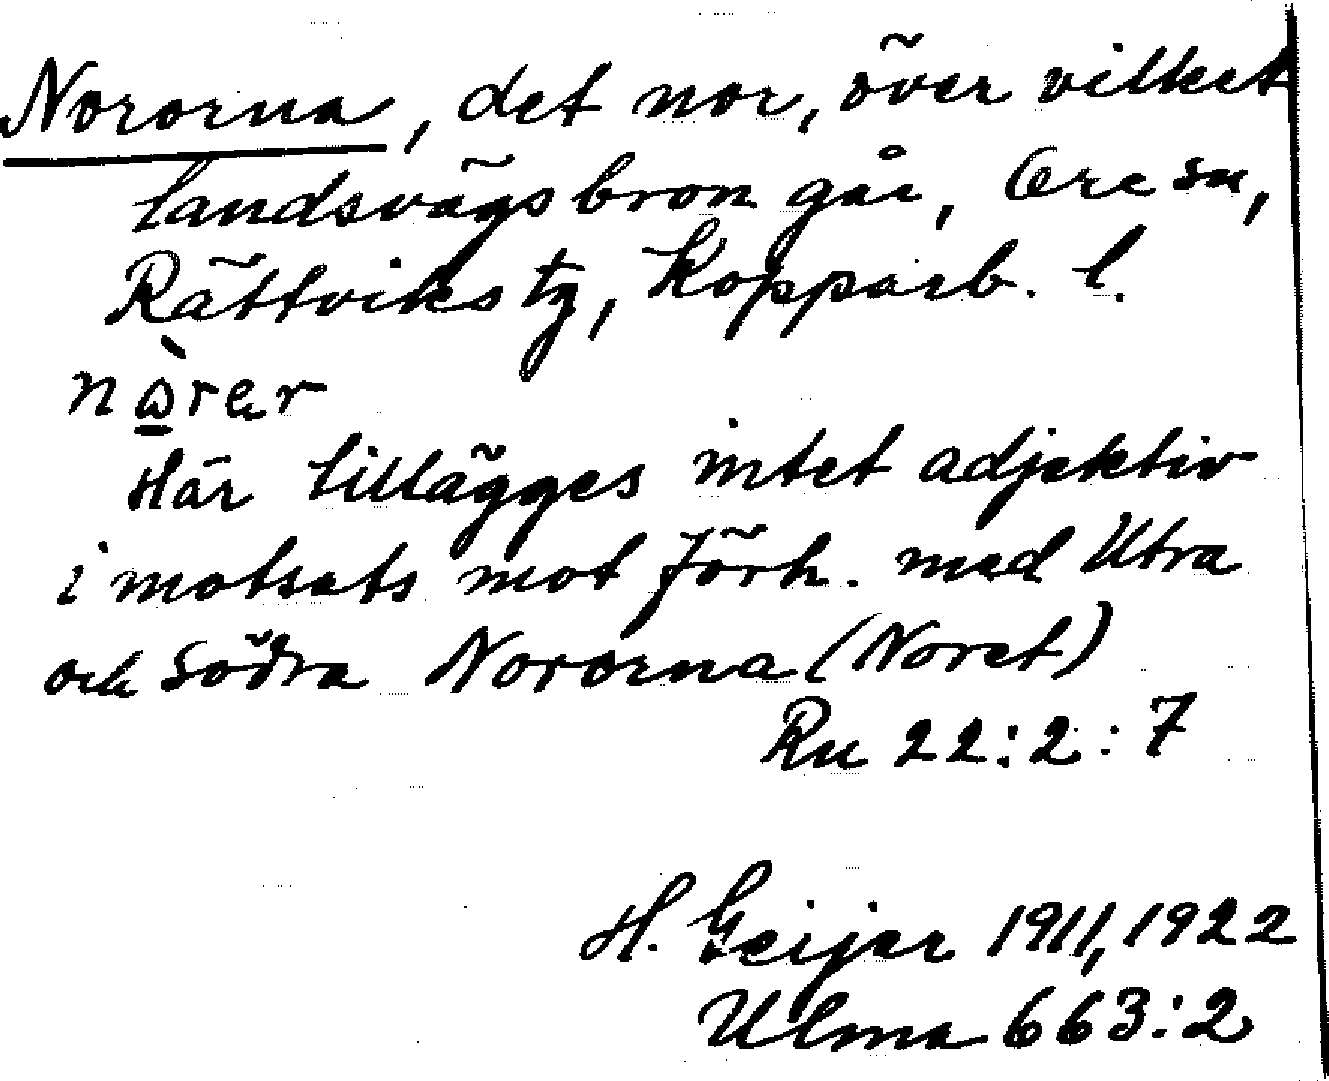 Nororna, det nor, över vilket
landsvägsbron går, Ore sn,
Rättviks tg, Kopparb. l.
nὼ̱rer
Här tillägges intet adjektiv
i motsats mot förh. med Utra
och Södra Nororna (Noret)
Ru 22:2:7
H. Geijer 1911, 1922
Ulma 663:2